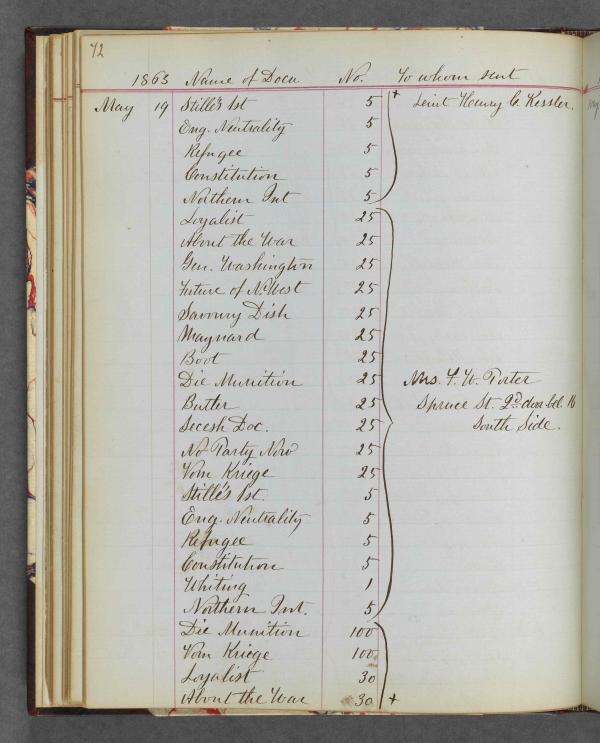 72
1863 Name of Docu No. To whom sent
May 19 Stille's 1st 5 + Leiut Henry C. Kessler.
Eng. Neutrality 5
Refugee 5
Constitution 5
Northern Int 5
Loyalist 25
About the War 25
Gen. Washington 25
Future of N. West 25
Savoury Dish 25
Maynard 25
Boot 25
Die Munition 25 Mrs. F. W. Porter
Butler 25 Spruce St. 2d door bel. 16
Secesh Doc. 25 South Side.
No Party Now 25
Vom Kriege 25
Stille's 1st. 5
Eng. Neutrality 5
Refugee 5
Constitution 5
Whiting 1
Northern Int. 5
Die Munition 100
Vom Kriege 100
Loyalist 30
About the War 30 +